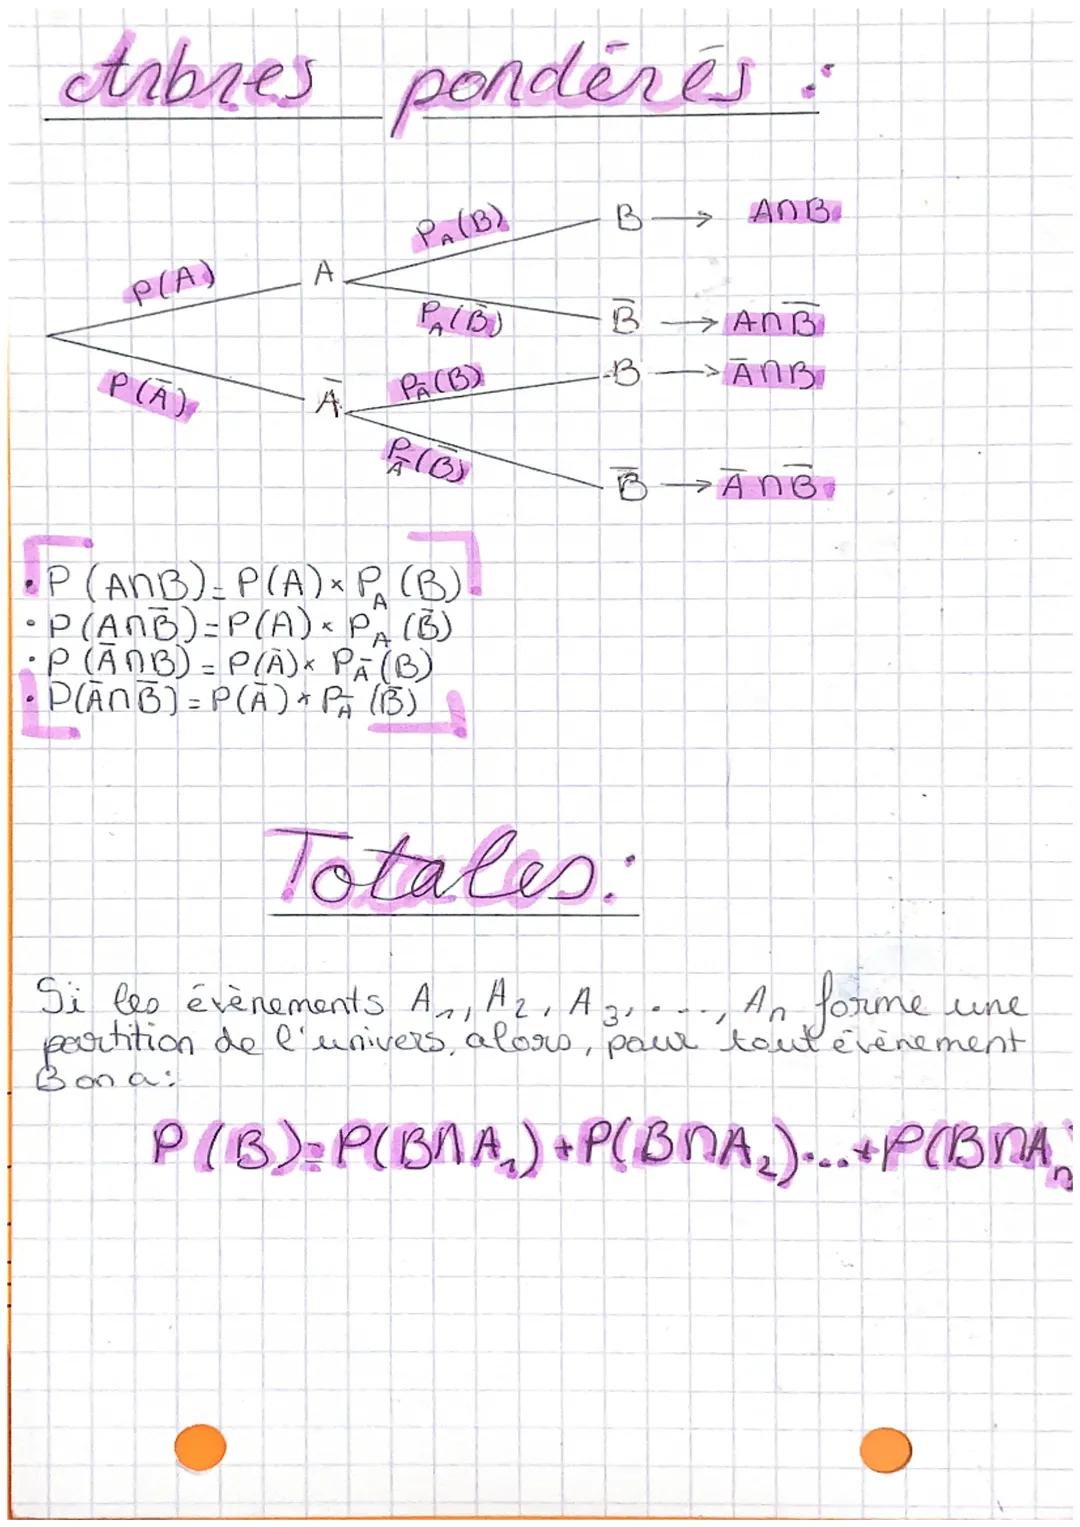 Arbres pondérés :
P_A(B) B → A∩B
P(A) A
P_A(B̅) B̅ → A∩B̅
P(A̅) A̅ P_A̅(B) B → A̅∩B
P_A̅(B̅) B̅ → A̅∩B̅
• P(A∩B) = P(A) × P_A(B)
• P(A∩B̅) = P(A) × P_A(B̅)
• P(A̅∩B) = P(A̅) × P_A̅(B)
• P(A̅∩B̅) = P(A̅) × P_A̅(B̅)
Totales :
Si les évènements A₁, A₂, A₃, ...., Aₙ forme une
partition de l'univers, alors, pour tout évènement
B on a :
P(B) = P(B∩A₁) + P(B∩A₂)...+P(B∩Aₙ)